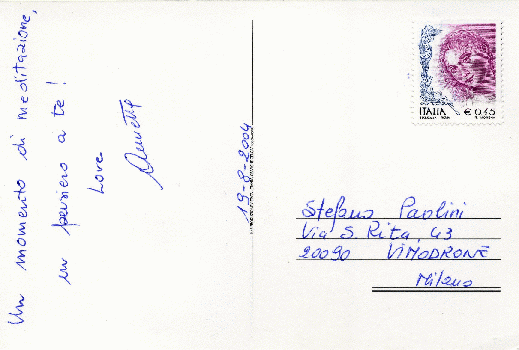 Un momento di meditazione,
un pensiero a te!
Love
19-8-2004
ITALIA € 0,45
Stefano Paolini
Via S. Rita, 43
20090 VIMODRONE
Milano